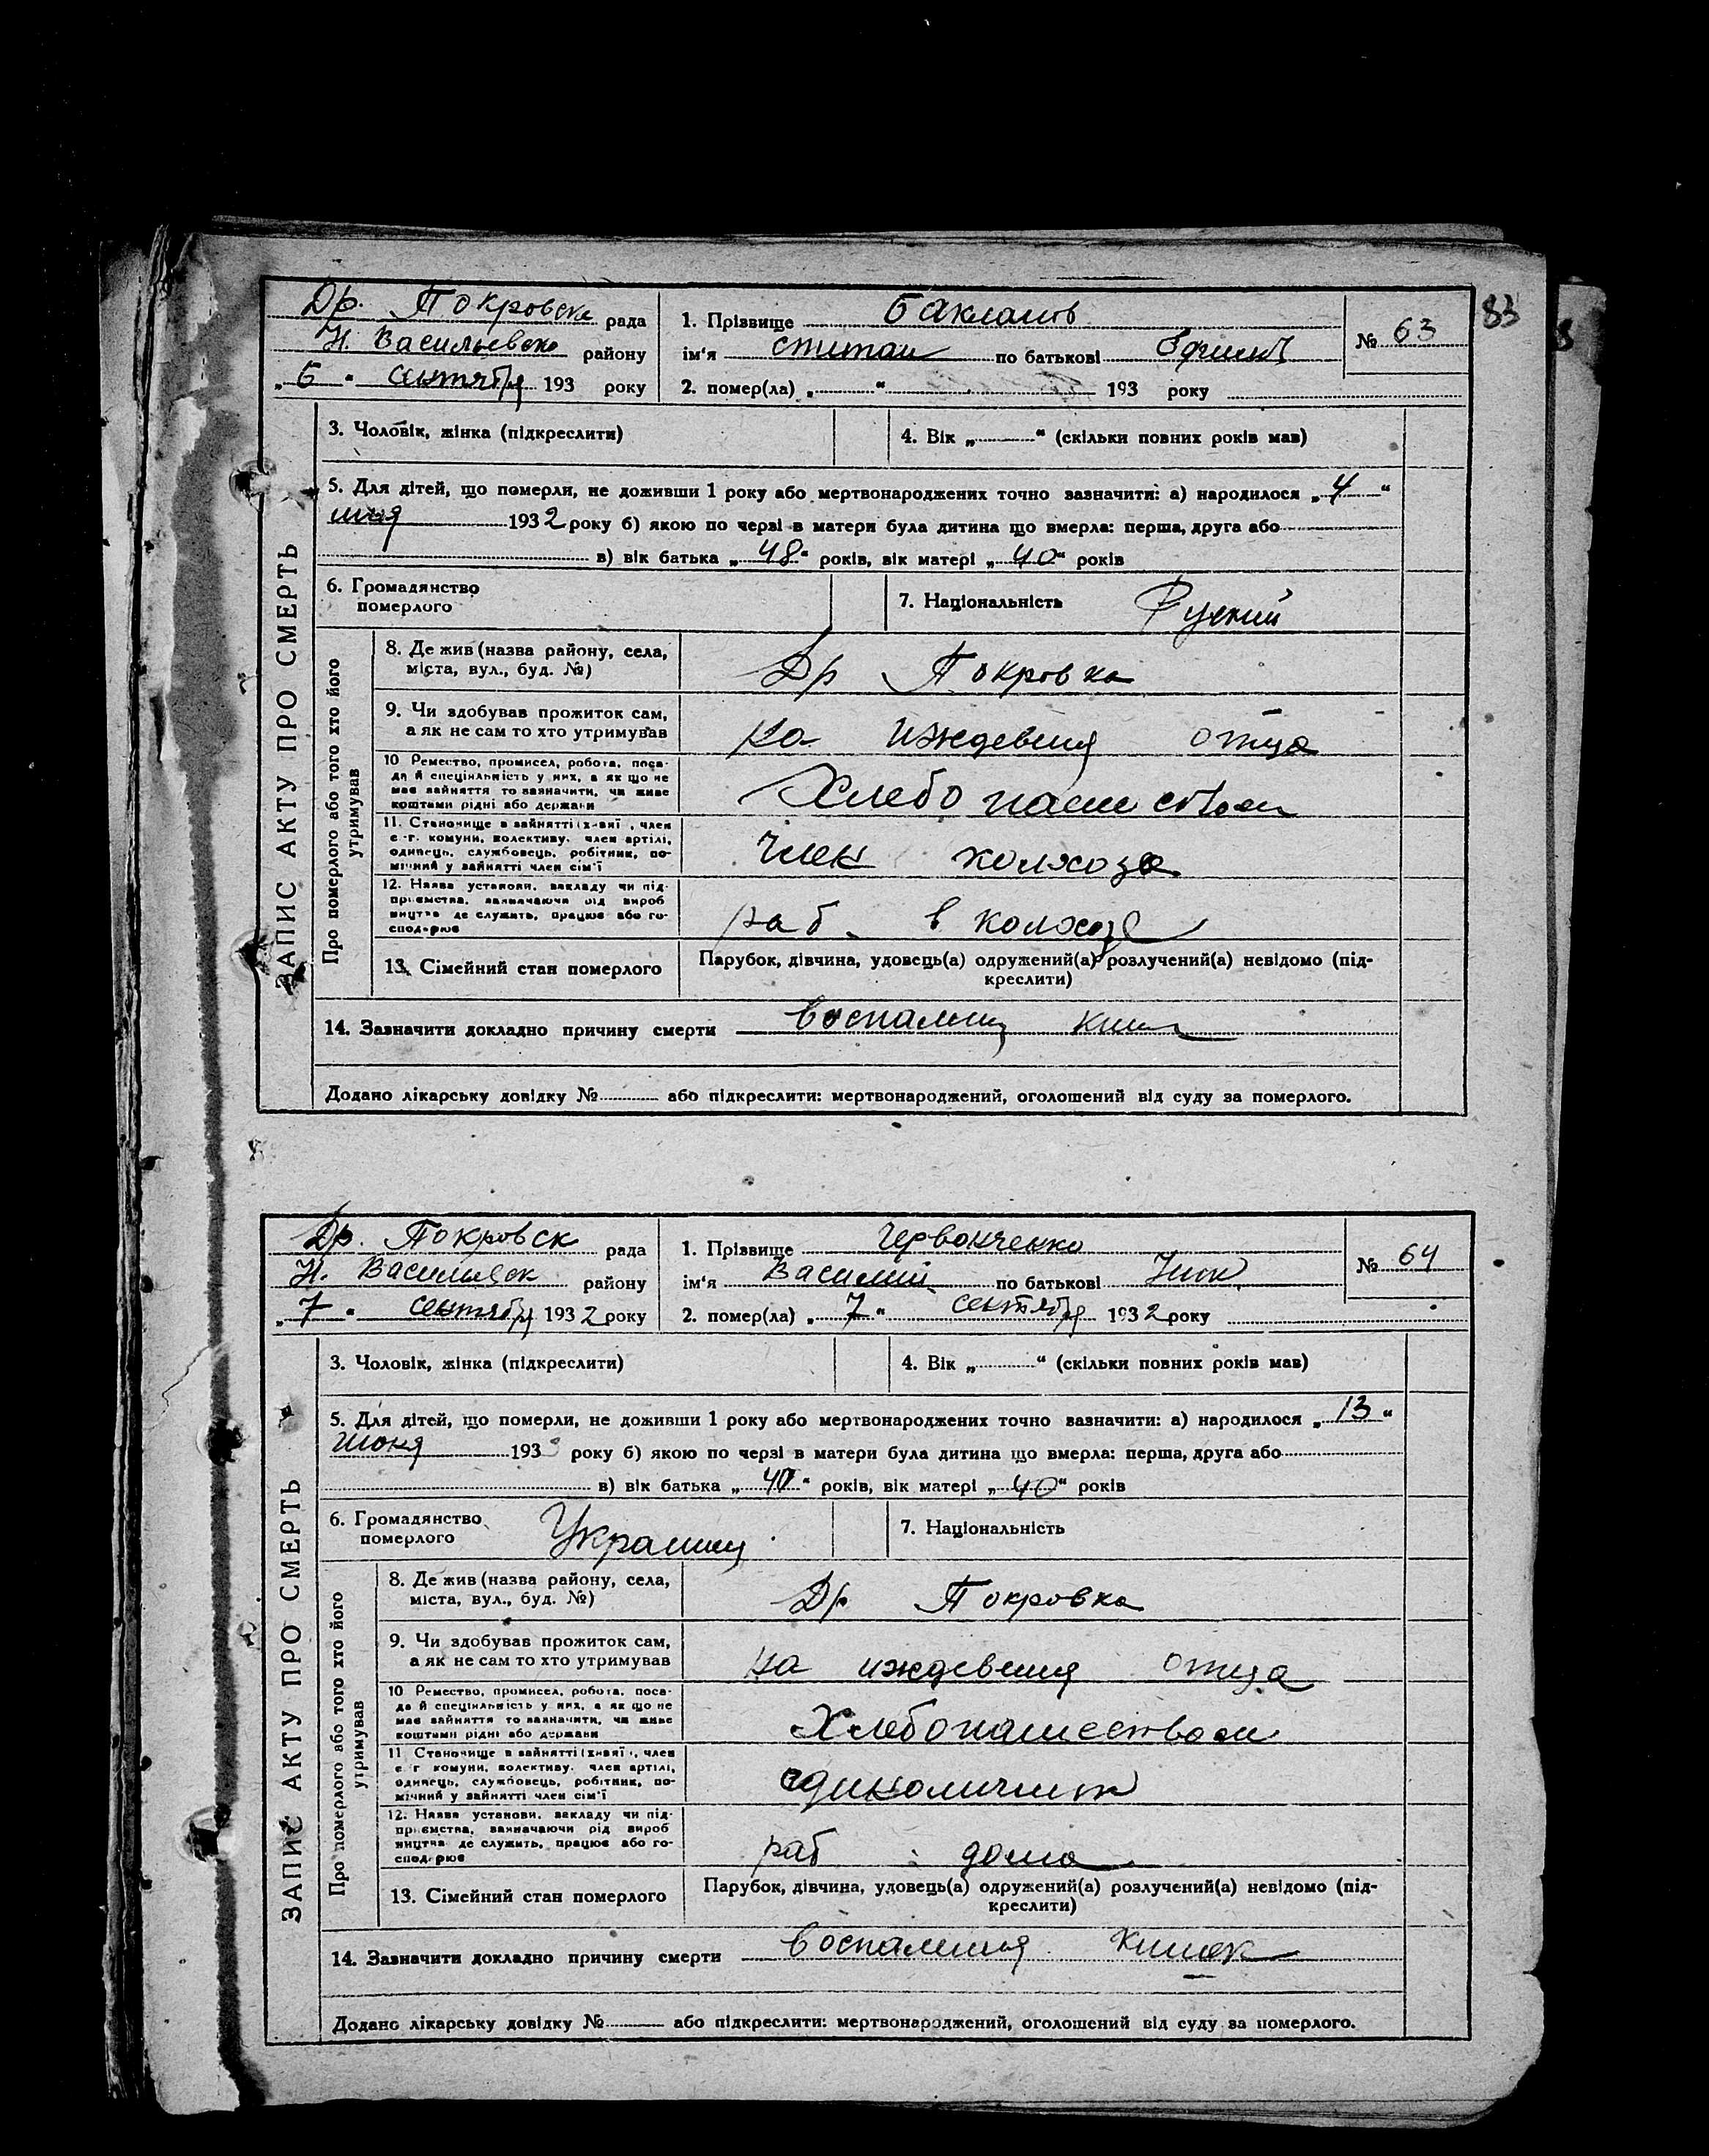 83
Др. Покровска рада
Н. Васильевско району
„ 6 " сентября 193 року
1. Прізвище Бакланов
ім'я Степан по батькові
2. помер(ла) „ " 193 року
№ 63
ЗАПИС АКТУ ПРО СМЕРТЬ
3. Чоловік, жінка (підкреслити)
4. Вік „ " (скільки повних років мав)
5. Для дітей, що померли, не доживши 1 року або мертвонароджених точно зазначити: а) народилося „ 4 "
1932 року б) якою по черзі в матери була дитина що вмерла: перша, друга або
в) вік батька „ 48 " років, вік матері „ 40 " років
6. Громадянство
померлого
7. Національність Руский
Про померлого або того хто його
утримував
8. Де жив (назва району, села,
міста, вул., буд. №)
Др Покровка
9. Чи здобував прожиток сам,
а як не сам то хто утримував
на иждевения отца
10 Ремество, промисел, робота, поса-
да й спеціяльність у них, а як що не
має зайняття то зазначити, чи живе
коштами рідні або держави
Хлебопашеством
11. Становище в зайнятті (хазяї, член
с.-г. комуни, колективу, член артілі,
одинець, службовець, робітник, по-
мічний у зайнятті член сім'ї
член колхоза
12. Назва установи, закладу чи під-
приємства, зазначаючи рід вироб
ництва де служить, працює або го-
сподарює
раб. в колхозе
13. Сімейний стан померлого
Парубок, дівчина, удовець(а) одружений(а) розлучений(а) невідомо (під-
креслити)
14. Зазначити докладно причину смерти воспаления киш
Додано лікарську довідку № або підкреслити: мертвонароджений, оголошений від суду за померлого.
Др. Покровск рада
Н. Васильевск району
„ 7 " сентября 1932 року
1. Прізвище Червонченко
ім'я Василий по батькові Ник
2. помер(ла) „ 7 " сентября 1932 року
№ 64
ЗАПИС АКТУ ПРО СМЕРТЬ
3. Чоловік, жінка (підкреслити)
4. Вік „ " (скільки повних років мав)
5. Для дітей, що померли, не доживши 1 року або мертвонароджених точно зазначити: а) народилося „ 13 "
июня 193 року б) якою по черзі в матери була дитина що вмерла: перша, друга або
в) вік батька „ 40 " років, вік матері „ 40 " років
6. Громадянство
померлого
Украинец
7. Національність
Про померлого або того хто його
утримував
8. Де жив (назва району, села,
міста, вул., буд. №)
Др. Покровка
9. Чи здобував прожиток сам,
а як не сам то хто утримував
на иждевения отца
10 Ремество, промисел, робота, поса-
да й спеціяльність у них, а як що не
має зайняття то зазначити, чи живе
коштами рідні або держави
Хлебопашеством
11 Становище в зайнятті (хазяї, член
с г комуни, колективу, член артілі,
одинець, службовець, робітник, по-
мічний у зайнятті член сім'ї
единоличник
12. Назва установи, закладу чи під-
приємства, зазначаючи рід вироб
ництва де служить, працює або го-
сподарює
раб дома
13. Сімейний стан померлого
Парубок, дівчина, удовець(а) одружений(а) розлучений(а) невідомо (під-
креслити)
14. Зазначити докладно причину смерти воспаления кишек
Додано лікарську довідку № або підкреслити: мертвонароджений, оголошений від суду за померлого.